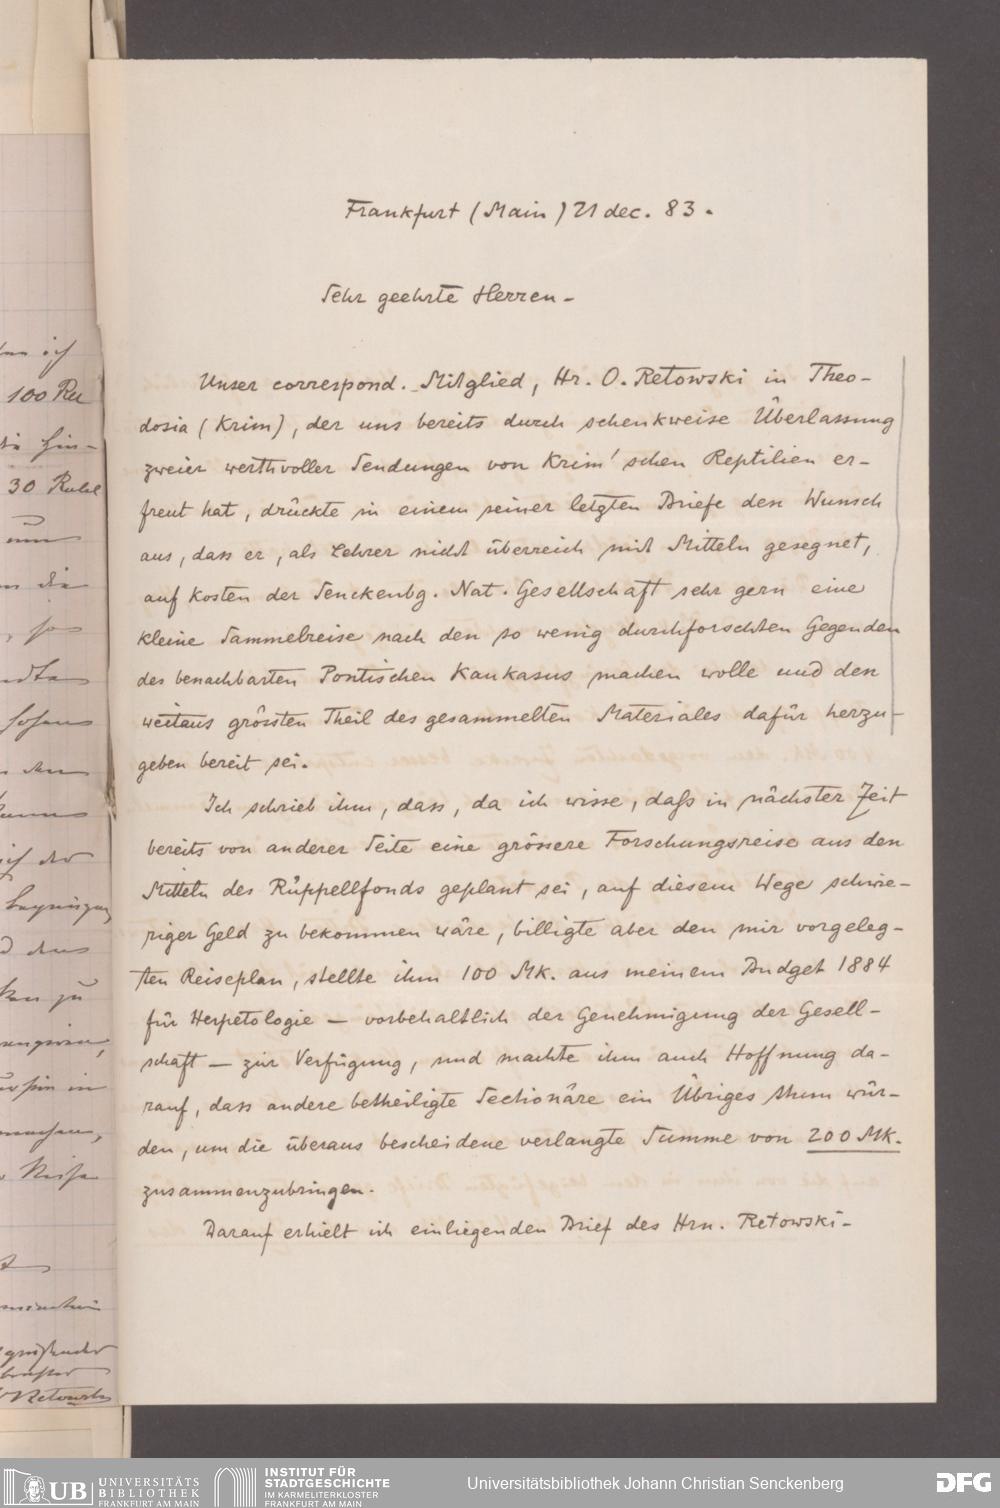 Frankfurt (Main) 21 dec. 83.
Sehr geehrte Herren -
Unser correspond. Mitglied, Hr. O. Retowski in Theo-
dosia (Krim), der uns bereits durch schenkweise Überlassung
zweier werthvoller Sendungen von Krim'schen Reptilien er-
freut hat, drückte in einem seiner letzten Briefe den Wunsch
aus, dass er, als Lehrer nicht überreich mit Mitteln gesegnet,
auf Kosten der Senckenbg. Nat. Gesellschaft sehr gern eine
kleine Sammelreise nach den so wenig durchforschten Gegenden
des benachbarten Pontischen Kaukasus machen wolle und den
weitaus grössten Theil des gesammelten Materiales dafür herzu-
geben bereit sei.
Ich schrieb ihm, dass, da ich wisse, daß in nächster Zeit
bereits von anderer Seite eine grössere Forschungsreise aus den
Mitteln des Rüppellfonds geplant sei, auf diesem Wege schwie-
riger Geld zu bekommen wäre, billigte aber den mir vorgeleg-
ten Reiseplan, stellte ihm 100 Mk. aus meinem Budget 1884
für Herpetologie — vorbehaltlich der Genehmigung der Gesell-
schaft — zur Verfügung, und machte ihm auch Hoffnung da-
rauf, dass andere betheiligte Sectionäre ein Übriges thun wür-
den, um die überaus bescheidene verlangte Summe von 200 Mk.
zusammenzubringen.
Darauf erhielt ich einliegenden Brief des Hrn. Retowski-
ich
100 Ru
30 Rubel
die
zu
in
Reise
Retowski
UB UNIVERSITÄTS
BIBLIOTHEK
FRANKFURT AM MAIN
INSTITUT FÜR
STADTGESCHICHTE
IM KARMELITERKLOSTER
FRANKFURT AM MAIN
Universitätsbibliothek Johann Christian Senckenberg
DFG